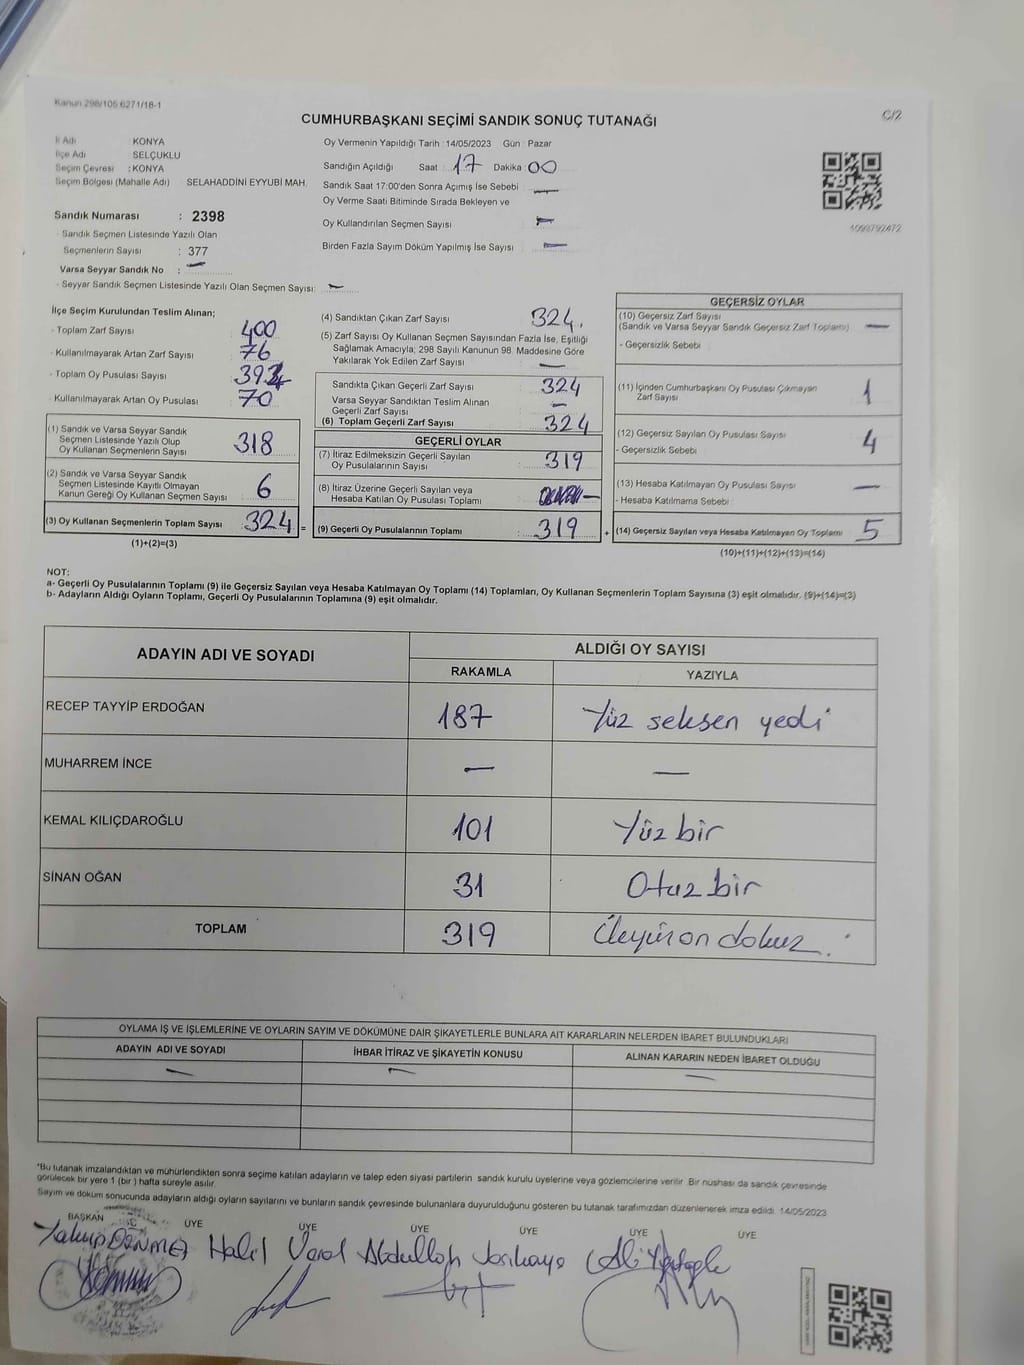 Kanun 298/105 6271/18-1
CUMHURBAŞKANI SEÇİMİ SANDIK SONUÇ TUTANAĞI
C/2
İl Adı : KONYA
İlçe Adı : SELÇUKLU
Seçim Çevresi : KONYA
Seçim Bölgesi (Mahalle Adı) SELAHADDİNİ EYYUBİ MAH.
Sandık Numarası : 2398
- Sandık Seçmen Listesinde Yazılı Olan
Seçmenlerin Sayısı : 377
Varsa Seyyar Sandık No : —
- Seyyar Sandık Seçmen Listesinde Yazılı Olan Seçmen Sayısı: —
Oy Vermenin Yapıldığı Tarih : 14/05/2023 Gün : Pazar
Sandığın Açıldığı Saat : 17 Dakika : 00
Sandık Saat 17:00'den Sonra Açımış İse Sebebi —
Oy Verme Saati Bitiminde Sırada Bekleyen ve
Oy Kullandırılan Seçmen Sayısı : —
Birden Fazla Sayım Döküm Yapılmış İse Sayısı : —
1093792472
İlçe Seçim Kurulundan Teslim Alınan;
- Toplam Zarf Sayısı : 400
- Kullanılmayarak Artan Zarf Sayısı : 76
- Toplam Oy Pusulası Sayısı : 394
- Kullanılmayarak Artan Oy Pusulası : 70
(1) Sandık ve Varsa Seyyar Sandık
Seçmen Listesinde Yazılı Olup
Oy Kullanan Seçmenlerin Sayısı : 318
(2) Sandık ve Varsa Seyyar Sandık
Seçmen Listesinde Kayıtlı Olmayan
Kanun Gereği Oy Kullanan Seçmen Sayısı : 6
(3) Oy Kullanan Seçmenlerin Toplam Sayısı : 324 =
(1)+(2)=(3)
(4) Sandıktan Çıkan Zarf Sayısı : 324.
(5) Zarf Sayısı Oy Kullanan Seçmen Sayısından Fazla İse, Eşitliği
Sağlamak Amacıyla; 298 Sayılı Kanunun 98. Maddesine Göre
Yakılarak Yok Edilen Zarf Sayısı : —
Sandıkta Çıkan Geçerli Zarf Sayısı : 324
Varsa Seyyar Sandıktan Teslim Alınan
Geçerli Zarf Sayısı : —
(6) Toplam Geçerli Zarf Sayısı : 324
GEÇERLİ OYLAR
(7) İtiraz Edilmeksizin Geçerli Sayılan
Oy Pusulalarının Sayısı : 319
(8) İtiraz Üzerine Geçerli Sayılan veya
Hesaba Katılan Oy Pusulası Toplamı : —
(9) Geçerli Oy Pusulalarının Toplamı : 319 +
GEÇERSİZ OYLAR
(10) Geçersiz Zarf Sayısı
(Sandık ve Varsa Seyyar Sandık Geçersiz Zarf Toplamı) —
- Geçersizlik Sebebi :
(11) İçinden Cumhurbaşkanı Oy Pusulası Çıkmayan
Zarf Sayısı 1
(12) Geçersiz Sayılan Oy Pusulası Sayısı : 4
- Geçersizlik Sebebi :
(13) Hesaba Katılmayan Oy Pusulası Sayısı : —
- Hesaba Katılmama Sebebi :
(14) Geçersiz Sayılan veya Hesaba Katılmayan Oy Toplamı 5
(10)+(11)+(12)+(13)=(14)
NOT:
a- Geçerli Oy Pusulalarının Toplamı (9) ile Geçersiz Sayılan veya Hesaba Katılmayan Oy Toplamı (14) Toplamları, Oy Kullanan Seçmenlerin Toplam Sayısına (3) eşit olmalıdır. (9)+(14)=(3)
b- Adayların Aldığı Oyların Toplamı, Geçerli Oy Pusulalarının Toplamına (9) eşit olmalıdır.
ADAYIN ADI VE SOYADI ALDIĞI OY SAYISI
RAKAMLA YAZIYLA
RECEP TAYYİP ERDOĞAN 187 Yüz seksen yedi
MUHARREM İNCE — —
KEMAL KILIÇDAROĞLU 101 Yüz bir
SİNAN OĞAN 31 Otuz bir
TOPLAM 319 Üçyüz on dokuz.
OYLAMA İŞ VE İŞLEMLERİNE VE OYLARIN SAYIM VE DÖKÜMÜNE DAİR ŞİKAYETLERLE BUNLARA AİT KARARLARIN NELERDEN İBARET BULUNDUKLARI
ADAYIN ADI VE SOYADI İHBAR İTİRAZ VE ŞİKAYETİN KONUSU ALINAN KARARIN NEDEN İBARET OLDUĞU
— — —
*Bu tutanak imzalandıktan ve mühürlendikten sonra seçime katılan adayların ve talep eden siyasi partilerin sandık kurulu üyelerine veya gözlemcilerine verilir. Bir nüshası da sandık çevresinde
görülecek bir yere 1 (bir) hafta süreyle asılır.
Sayım ve döküm sonucunda adayların aldığı oyların sayılarını ve bunların sandık çevresinde bulunanlara duyurulduğunu gösteren bu tutanak tarafımızdan düzenlenerek imza edildi. 14/05/2023
BAŞKAN ÜYE ÜYE ÜYE ÜYE ÜYE ÜYE
Yakup DÖNMEZ Halil Abdullah Ali